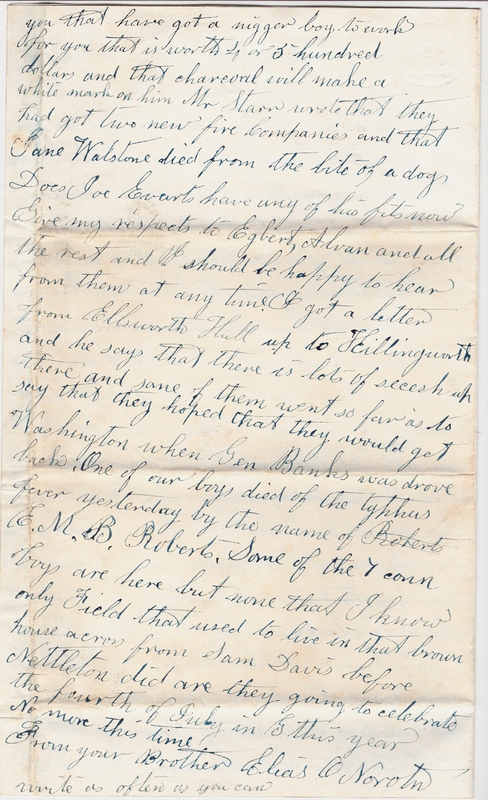 you that have got a nigger boy to work
for you that is worth 4 or 5 hundred
dollars and that charcoal will make a
white mark on him Mr Starr wrote that they
had got two new fire Companies and that
Jane Walstone died from the bite of a dog
Does Joe Evarts have any of his fits now
Give my respects to Egbert, Alvan and all
the rest and I should be happy to hear
from them at any time. I got a letter
from Ellsworth Hull up to Killingworth
and he says that there is lots of secesh up
there and some of them went so far as to
say that they hoped that they would get
Washington when Gen Banks was drove
back. One of our boys died of the typhus
fever yesterday by the name of Roberts
E. M. B. Roberts. Some of the 7 conn
boys are here but none that I know
only Field that used to live in that brown
house across from Sam Davis before
Nettleton did are they going to celebrate
the fourth of July in this year
No more this time
From your Brother Elias O Norotn
write as often as you can